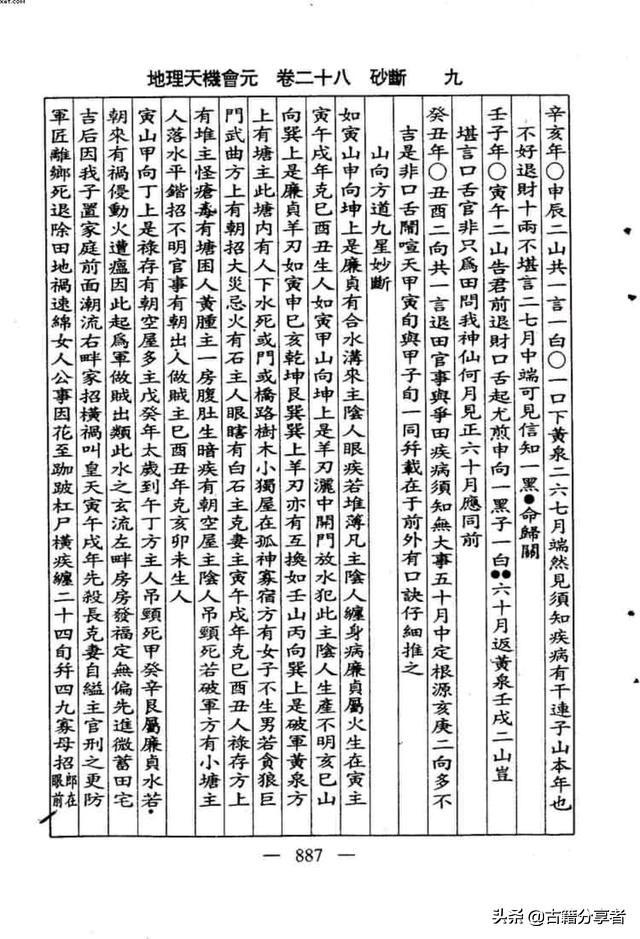 地理天機會元　卷二十八　砂斷　九
辛亥年○申辰二山共一言一白○一口下黃泉二六七月端然見須知疾病有干連子山本年也
不好退財十兩不堪言二七月中端可見信知一黑●命歸關
壬子年○寅午二山告君前退財口舌起尤煎申向一黑子一白●●六十月返黃泉壬戌二山豈
堪言口舌官非只爲田問我神仙何月見正六十月應同前
癸丑年○丑酉二向共一言退田官事與爭田疾病須知無大事五十月中定根源亥庚二向多不
吉是非口舌鬧喧天甲寅旬與甲子旬一同幷載在于前外有口訣仔細推之
山向方道九星妙斷
如寅山申向坤上是廉貞有合水溝來主陰人眼疾若堆薄凡主陰人纏身病廉貞屬火生在寅主
寅午戌年克巳酉丑生人如寅甲山向坤上是羊刃灑中開門放水犯此主陰人生產不明亥巳山
向巽上是廉貞羊刃如寅申巳亥乾坤艮巽巽上羊刃亦有互換如壬山丙向巽上是破軍黃泉方
上有塘主此塘內有人下水死或門或橋路樹木小獨屋在孤神寡宿方有女子不生男若貪狼巨
門武曲方上有朝招大災忌火有石主人眼瞎有白石主克妻主寅午戌年克巳酉丑人祿存方上
有堆主怪瘡毒有塘困人黃腫主一房腹肚生暗疾有朝空屋主陰人吊頸死若破軍方有小塘主
人落水平鍇招不明官事有朝出入做賊主巳酉丑年克亥卯未生人
寅山甲向丁上是祿存有朝空屋多主戊癸年太歲到午丁方主人吊頸死甲癸辛艮屬廉貞水若
朝來有禍侵動火遭瘟因此起爲軍做賊出類此水之玄流左畔房房發福定無偏先進微蓄田宅
吉后因我子置家庭前面潮流右畔家招橫禍叫皇天寅午戌年先殺長克妻自縊主官刑之更防
軍匠離鄉死退除田地禍速綿女人公事因花至跏跛杠尸橫疾纏二十四旬幷四九寡母招郎在眼前
— 887 —
头条 @古籍分享者